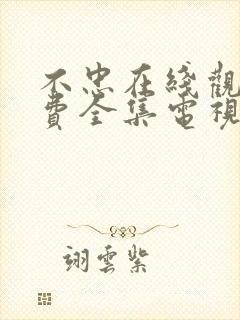 不忠在綫觀
費全集電視
翊雲紫